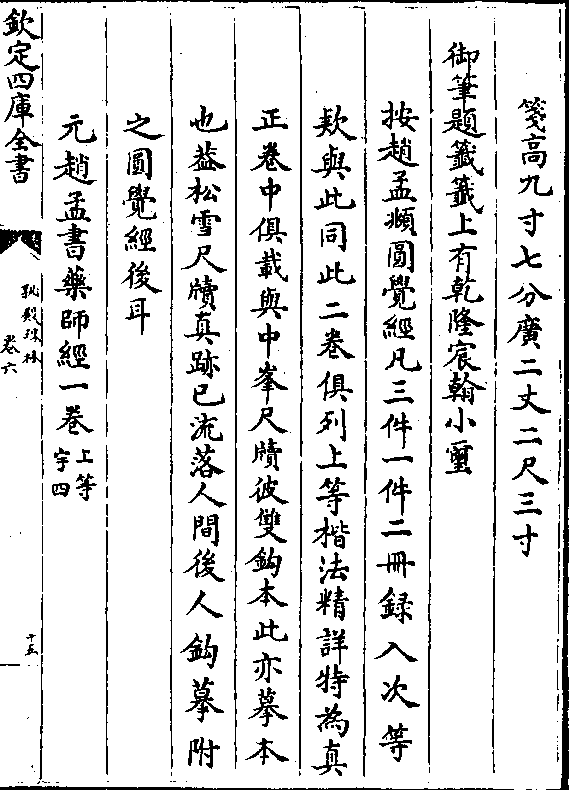 箋高九寸七分廣二丈二尺三寸
御筆題籤籤上有乾隆宸翰小璽
按趙孟頫圓覺經凡三件一件二冊録入次等
欵與此同此二卷俱列上等楷法精詳特為真
正卷中俱載與中峯尺牘彼雙鈎本此亦摹本
也葢松雪尺牘真跡已流落人間後人鈎摹附
之圓覺經後耳
元趙孟書藥師經一卷上等
宇四
欽定四庫全書
秘殿珠林
卷六
十五